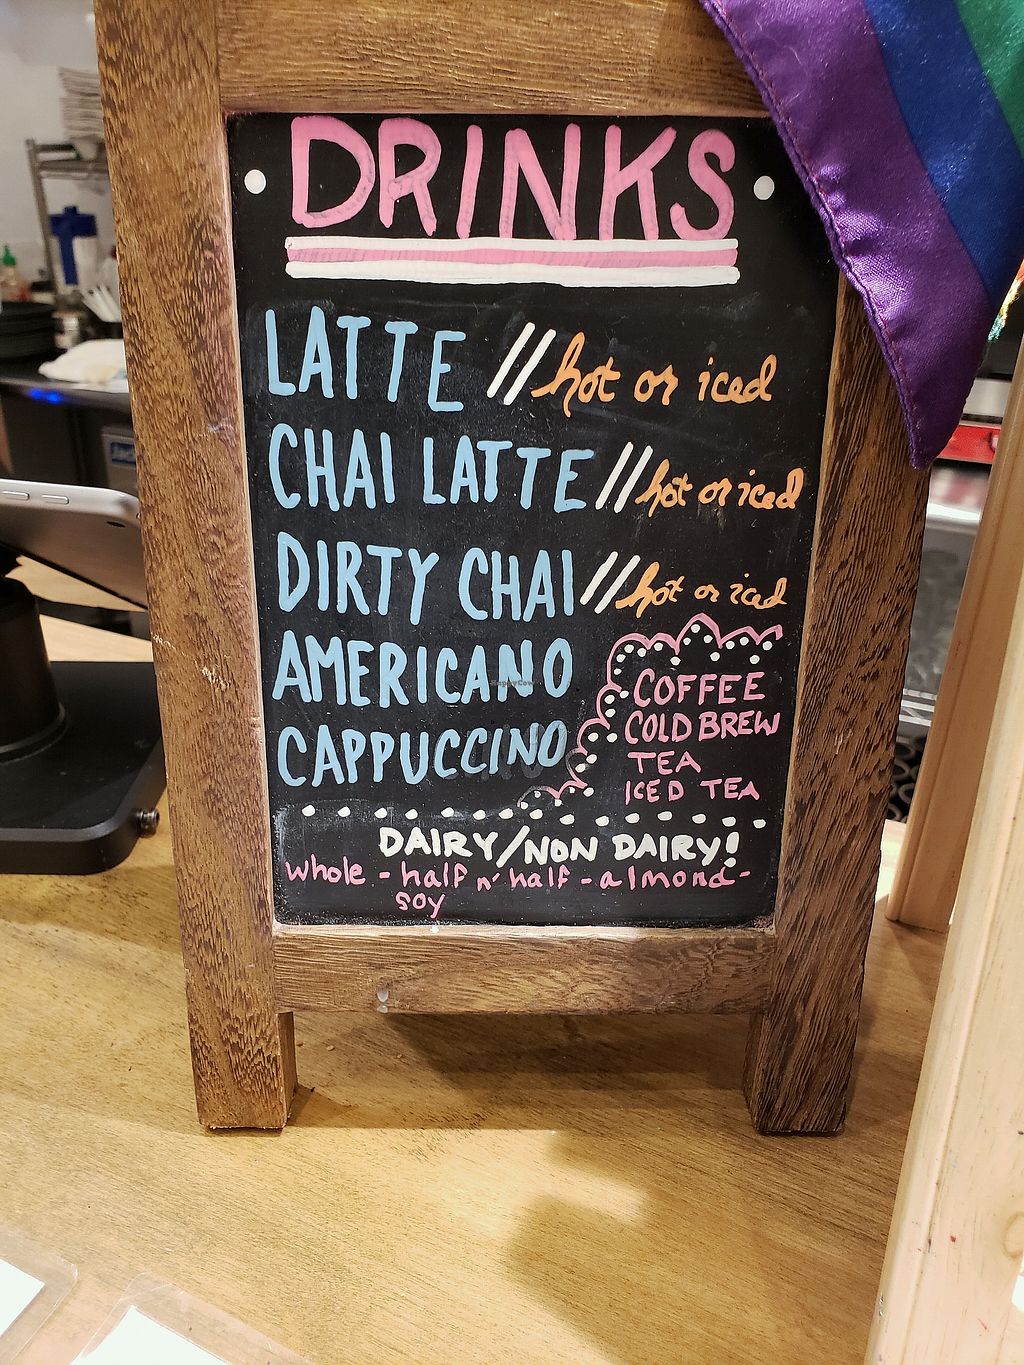 DRINKS
LATTE // hot or iced
CHAI LATTE // hot or iced
DIRTY CHAI // hot or iced
AMERICANO
CAPPUCCINO
COFFEE
COLD BREW
TEA
ICED TEA
DAIRY/NON DAIRY!
whole - half n' half - almond -
soy